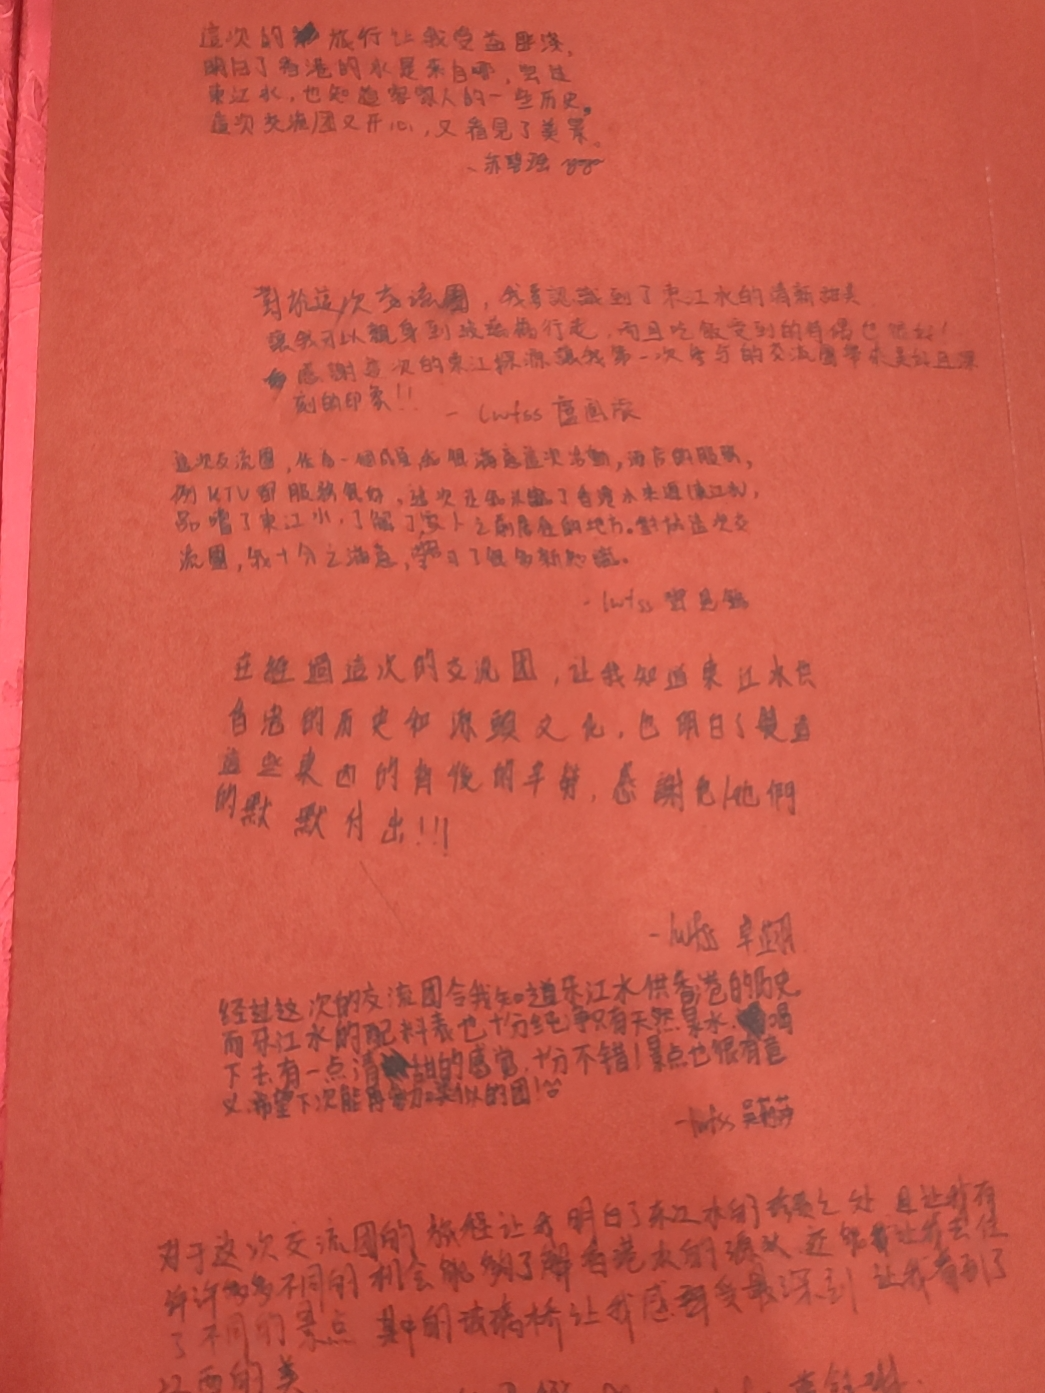 這次的旅行让我受益匪浅,
明白了香港的水是來自哪,
東江水,也知道客家人的一些历史,
這次交流团又开心,又看見了美景。
對於這次交流團,我認識到了東江水的清新甜美
讓我可以親身到玻璃橋行走,而且吃飯受到的待遇也很好!
感謝這次的東江探源讓我第一次參與的交流團帶來美好且深
刻的印象!!
- lwfss
這次交流團,我很滿意這次活動,酒店的服務,
例KTV都服務很好,這次還能認識了香港水來源,
品嚐了東江水,了解了之前居住的地方。對於這次交
流團,我十分之滿意,學习了很多新知識。
- lwfss
在經過這次的交流团,让我知道東江水供
香港的历史和源頭文化,也明白了
這些東西的背後的辛勞,感謝他們
的默默付出!!!
- lwfss 卓
经过这次的交流团令我知道东江水供香港的历史
而东江水的配料表也十分纯净只有天然泉水,喝
下去有一点清甜的感觉,十分不错!景点也很有意
义,希望下次能再参加类似的团!
- lwfss 吴
对于这次交流團的旅程让我明白了东江水的之处 且让我有
许许多多不同的机会能夠了解香港水的源头 还能让我去往
了不同的景点 其中的玻璃桥让我感受最深刻 让我看到了
江西的美